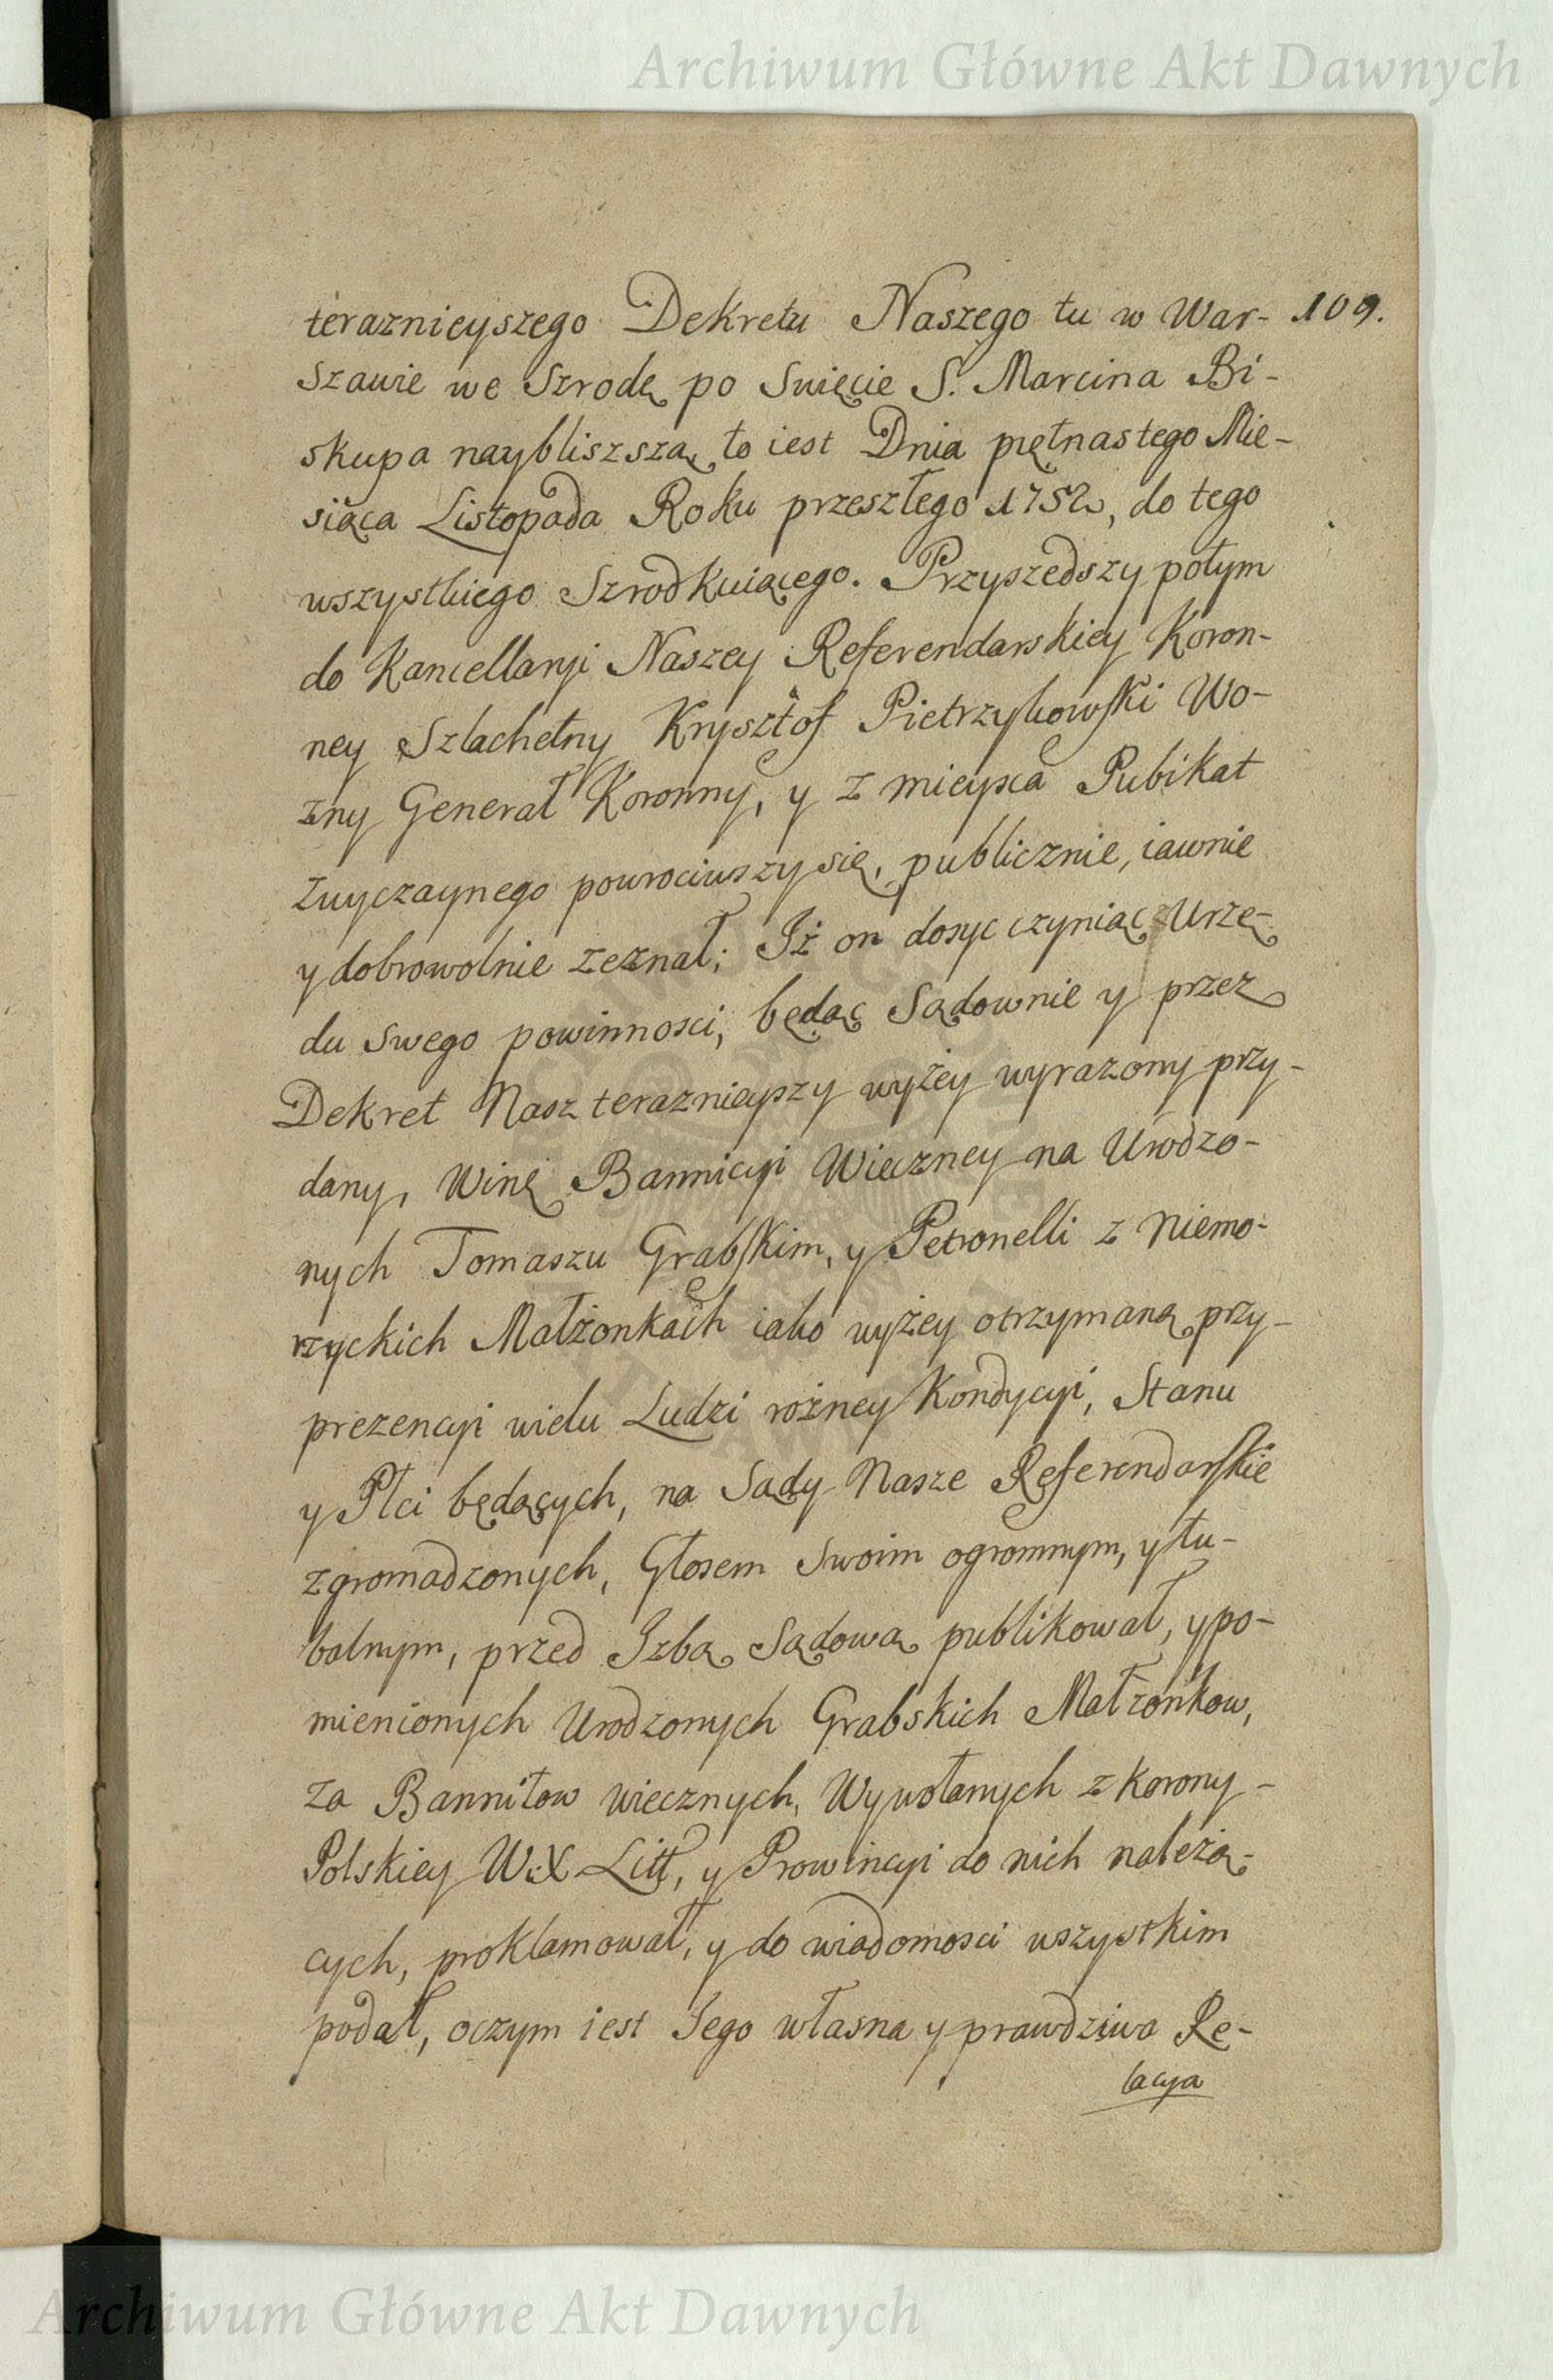 Archiwum Główne Akt Dawnych
teraznieyszego Dekretu Naszego tu w War- 109.
szawie we Szrodę po Swięcie S. Marcina Bi-
skupa naybliszszą to iest Dnia piętnastego Mie-
siąca Listopada Roku przeszłego 1752, do tego
wszystkiego Szrodkuiącego. Przyszedszy potym
do Kancellaryi Naszey Referendarskiey Koron-
ney Szlachetny Krysztof Pietrzykowski Wo-
zny Generał Koronny, y z mieysca Pubikat
zwyczaynego powrociwszy się, publicznie, iawnie
y dobrowolnie zeznał; Iż on dosyc czyniąc Urzę-
du swego powinnosci, będąc Sądownie y przez
Dekret Nasz teraznieyszy wyżey wyrazony przy-
dany, Winę Bannicyi Wieczney na Urodzo-
nych Tomaszu Grabskim, y Petronelli z Niemo-
rzyckich Małżonkach iako wyżey otrzymaną przy
prezencyi wielu Ludzi rożney Kondycyi, Stanu
y Płci będących, na Sądy Nasze Referendarskie
zgromadzonych, Głosem Swoim ogromnym, y tu-
balnym, przed Izbą Sądową publikował, y po-
mienionych Urodzonych Grabskich Małzonkow,
za Bannitow wiecznych, Wywołanych z Korony
Polskiey W.X. Litt, y Prowincyi do nich należą-
cych, proklamował, y do wiadomosci wszystkim
podał, oczym iest Jego własna y prawdziwa Re-
lacya
Archiwum Główne Akt Dawnych